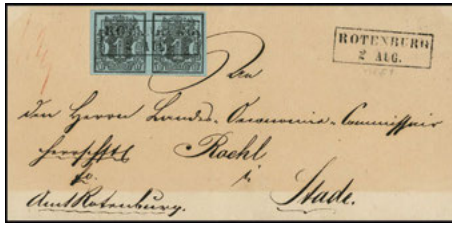 1 1
ROTENBURG
2 AUG.
An
den Herrn Landes-Oeconomie-Commissair
Roehl
Stade.
Amt Rotenburg.